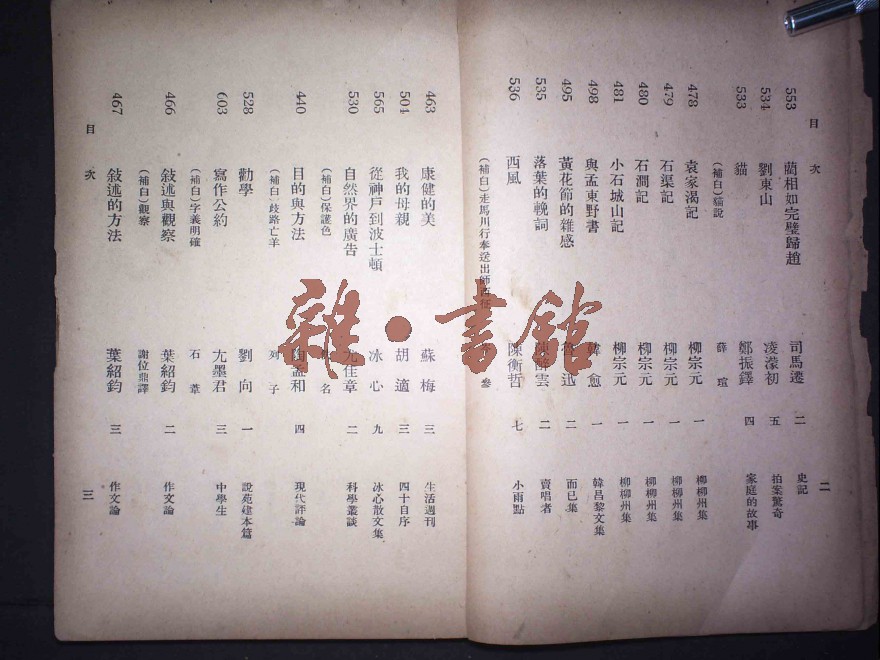 目次 二
553 藺相如完璧歸趙 司馬遷 二 史記
534 劉東山 凌濛初 五 拍案驚奇
533 貓 鄭振鐸 四 家庭的故事
(補白)貓說 薛瑄
478 袁家渴記 柳宗元 一 柳柳州集
479 石渠記 柳宗元 一 柳柳州集
480 石澗記 柳宗元 一 柳柳州集
481 小石城山記 柳宗元 一 柳柳州集
498 與孟東野書 韓愈 一 韓昌黎文集
495 黃花節的雜感 魯迅 二 而已集
535 落葉的輓詞 雲 二 賣唱者
536 西風 陳衡哲 七 小雨點
(補白)走馬川行奉送出師西征 岑參
463 康健的美 蘇梅 三 生活週刊
504 我的母親 胡適 三 四十自序
565 從神戶到波士頓 冰心 九 冰心散文集
530 自然界的廣告 尤佳章 二 科學叢談
(補白)保護色 名
440 目的與方法 陶孟和 四 現代評論
(補白)歧路亡羊 列子
528 勸學 劉向 一 說苑建本篇
603 寫作公約 尤墨君 三 中學生
(補白)字義明確 石葦
466 敍述與觀察 葉紹鈞 二 作文論
(補白)觀察 謝位鼎譯
467 敍述的方法 葉紹鈞 三 作文論
目次 三
雜·書館